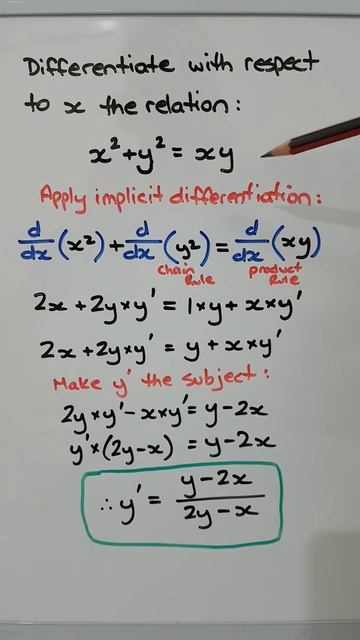 Differentiate with respect
to x the relation:
x² + y² = xy
Apply implicit differentiation:
d/dx (x²) + d/dx (y²) = d/dx (xy)
Chain Rule product Rule
2x + 2y × y' = 1 × y + x × y'
2x + 2y × y' = y + x × y'
Make y' the subject:
2y × y' - x × y' = y - 2x
y' × (2y - x) = y - 2x
∴ y' = (y - 2x)/(2y - x)